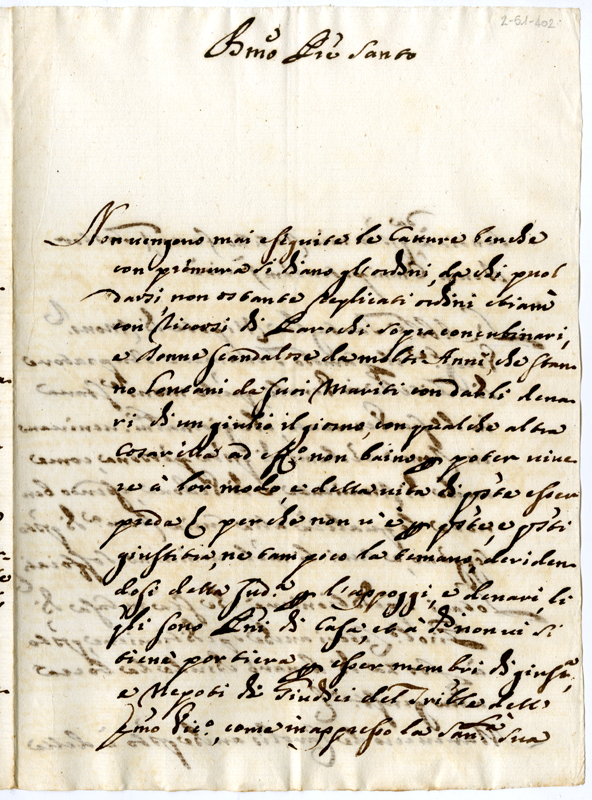 2-61-402
Bmo Pre Santo
Non uengono mai eseguite le Catture benche
con premura si diano gl'ordini, da chi puol
darsi, non ostante replicati ordini etiam
con Ricorsi di Parochi sopra concubinari,
e Donne scandalose da molti Anni che stan-
no lontani da suoi Mariti con darli dena-
ri di un giulio il giorno, con qualche altra
cosarella ad eff.o non
poter uiue-
re à lor modo, e della uita di pnte esser
preda perche non u'è
giustitia, ne tam poco la temano, deriden-
dosi della sud.a l'appoggi, e denari, li
qli sono Pni di Casa, et à non ui si
tiene portiera esser membri di giust.a,
e Nepoti di Giudici del Trible dell
Emo Vic.o, come inappresso la San.tà Sua